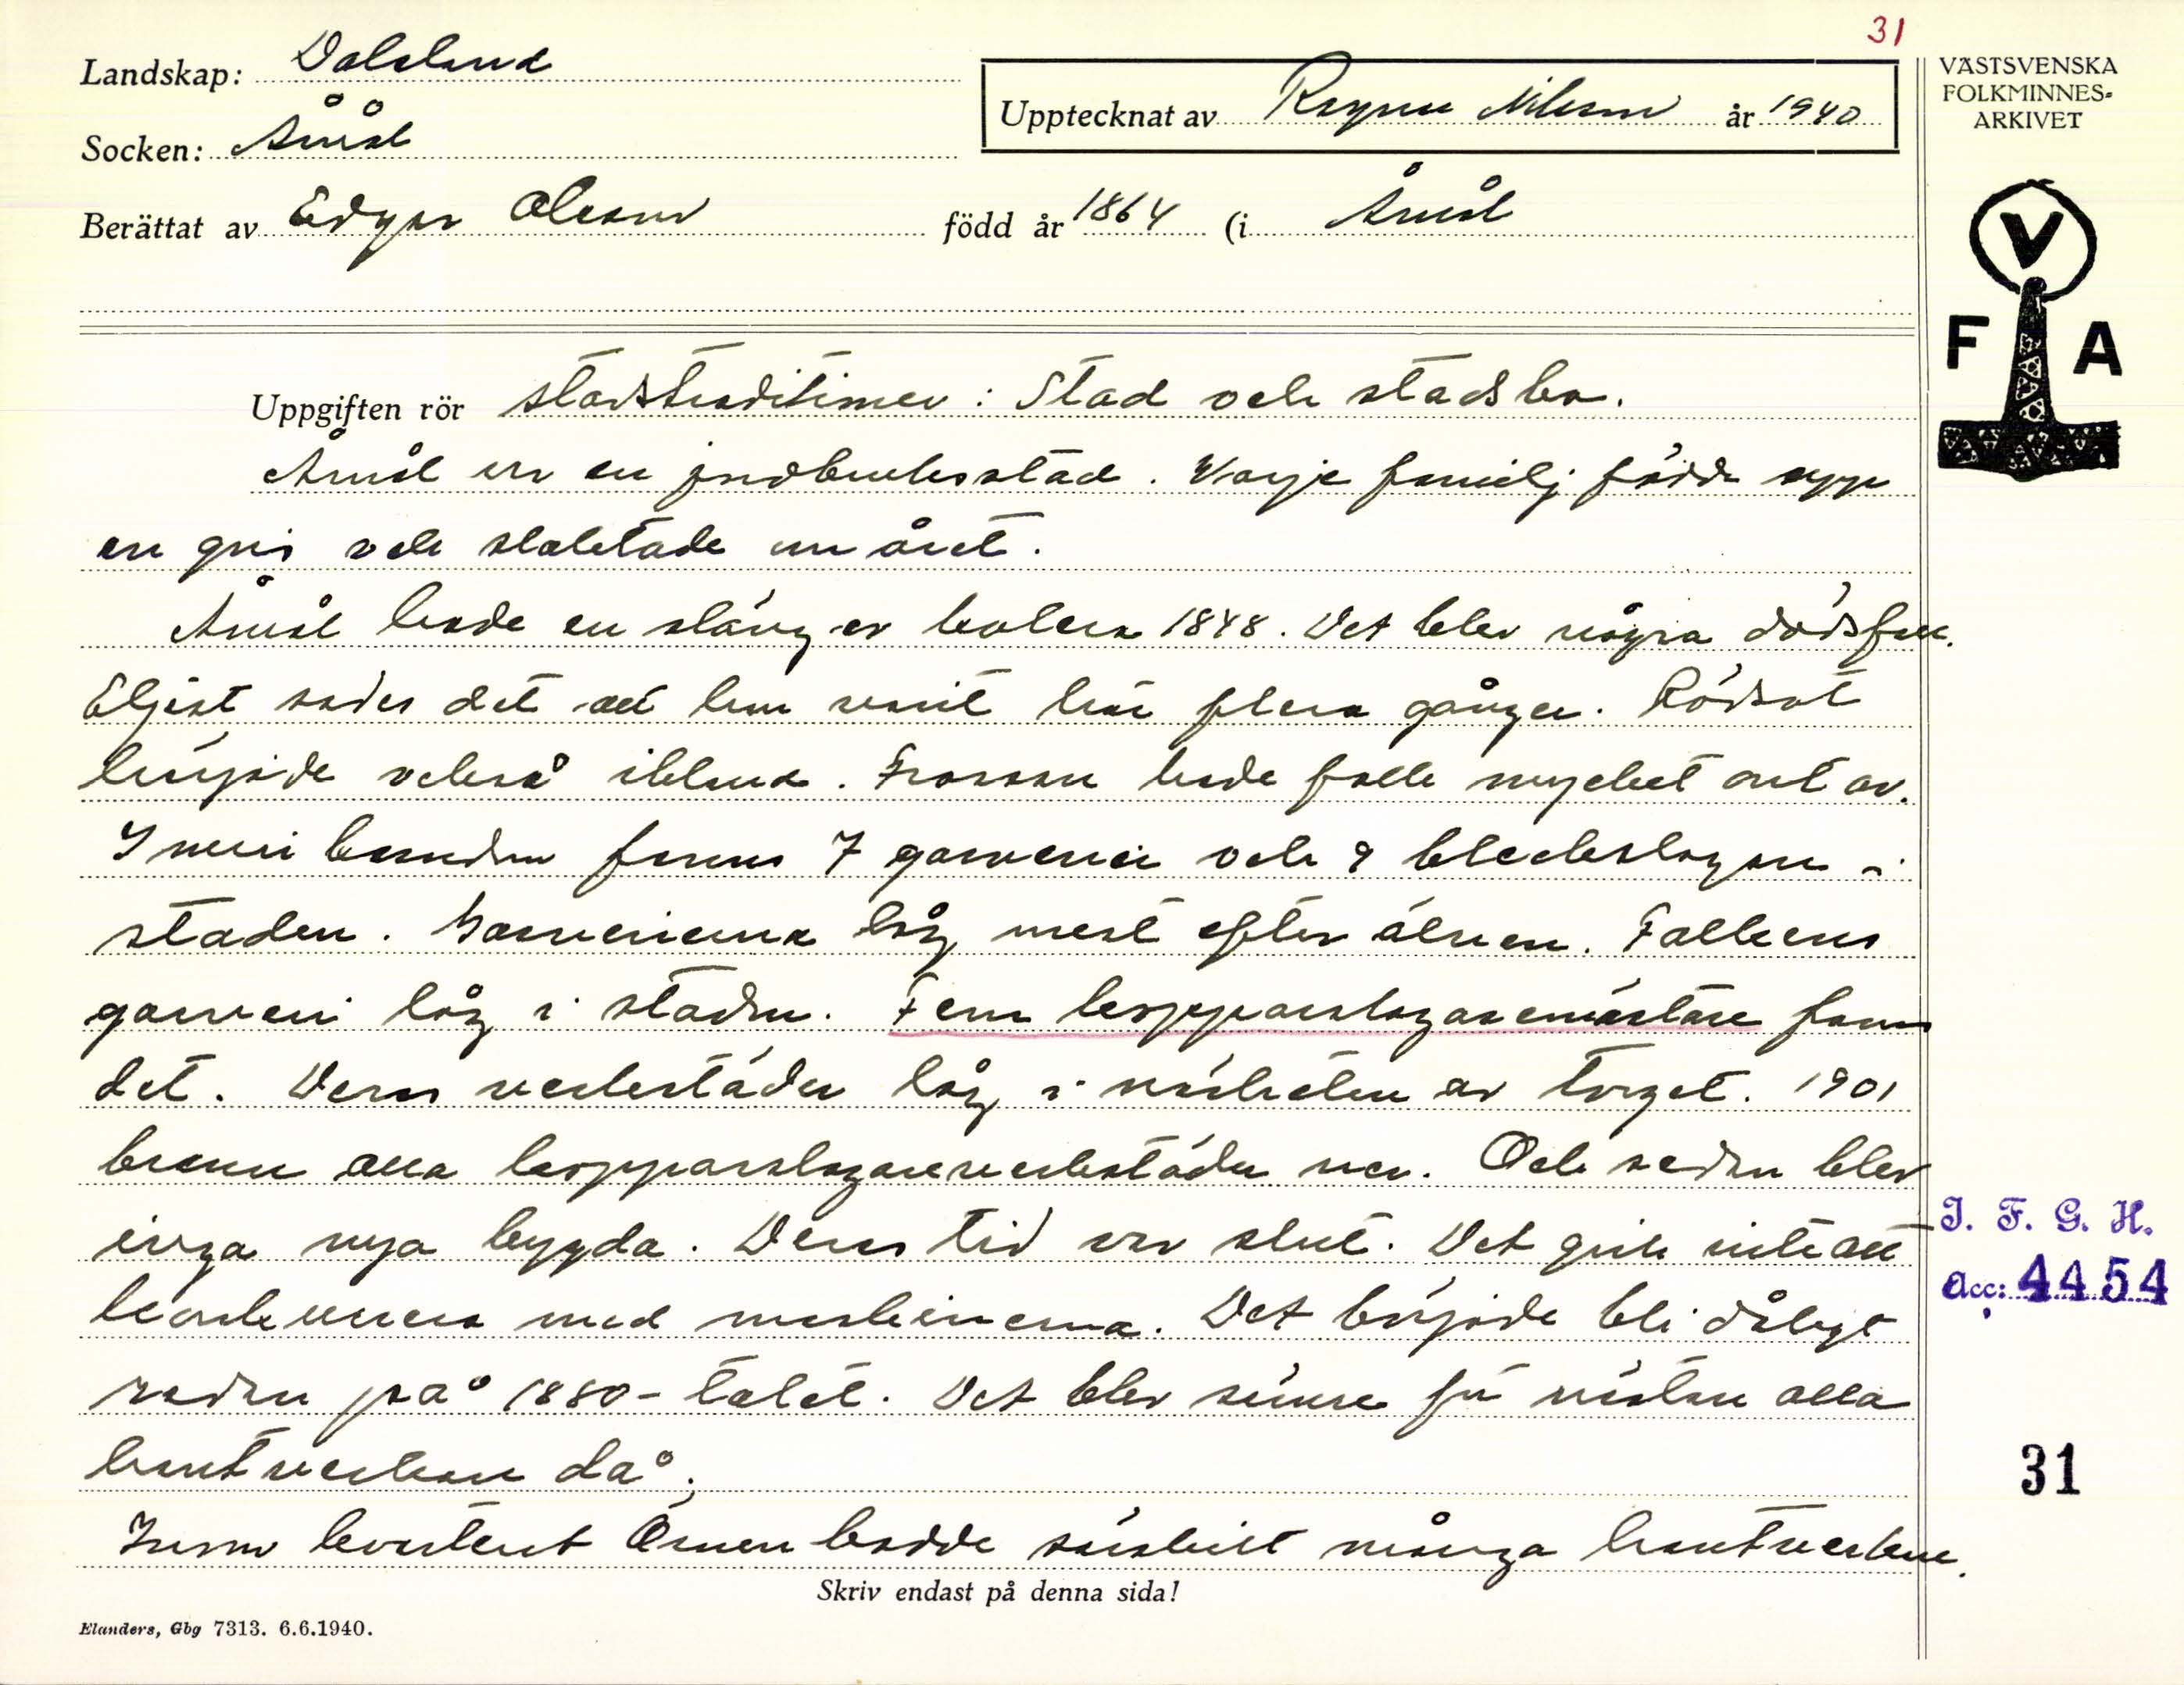 31
Landskap: Dalsland
Socken: Åmål
Upptecknat av Ragnar Nilsson år 1940
VÄSTSVENSKA
FOLKMINNES-
ARKIVET
Berättat av Edgar Olsson född år 1864 (i Åmål
V
F A
Uppgiften rör stadstraditioner: Stad och stadsbo.
Åmål var en jordbruksstad. Varje familj födde upp
en gris och slaktade om året.
Åmål hade en släng av kolera 1848. Det blev några dödsfall.
Eljest sades det att den varit här flera gånger. Rödsot
härjade också ibland. Frossan hade folk mycket ont av.
I min barndom fanns 7 garverier och 9 bleckslagare i
staden. Garverierna låg mest efter älven. Falkens
garveri låg i staden. Fem kopparslagaremästare fanns
det. Deras verkstäder låg i närheten av torget. 1901
brann alla kopparslagareverkstäder ner. Och sedan blev
inga nya byggda. Deras tid var slut. Det gick inte att
konkurrera med maskinerna. Det började bli dåligt
redan på 1880-talet. Det blev sämre för nästan alla
hantverkare då.
Inom kvarteret Örnen bodde särskilt många hantverkare.
J. F. G. H.
Acc: 4454
31
Skriv endast på denna sida!
Elanders, Gbg 7313. 6.6.1940.